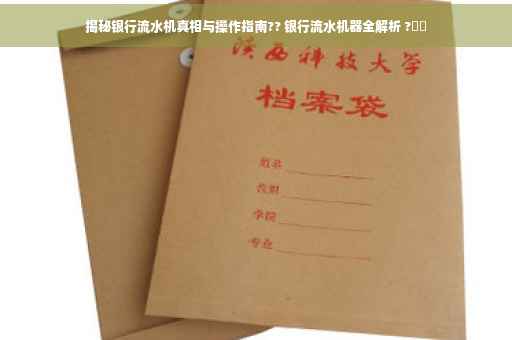 揭秘银行流水机真相与操作指南?? 银行流水机器全解析 ?
陕西科技大学
档案袋
姓名
学院
专业